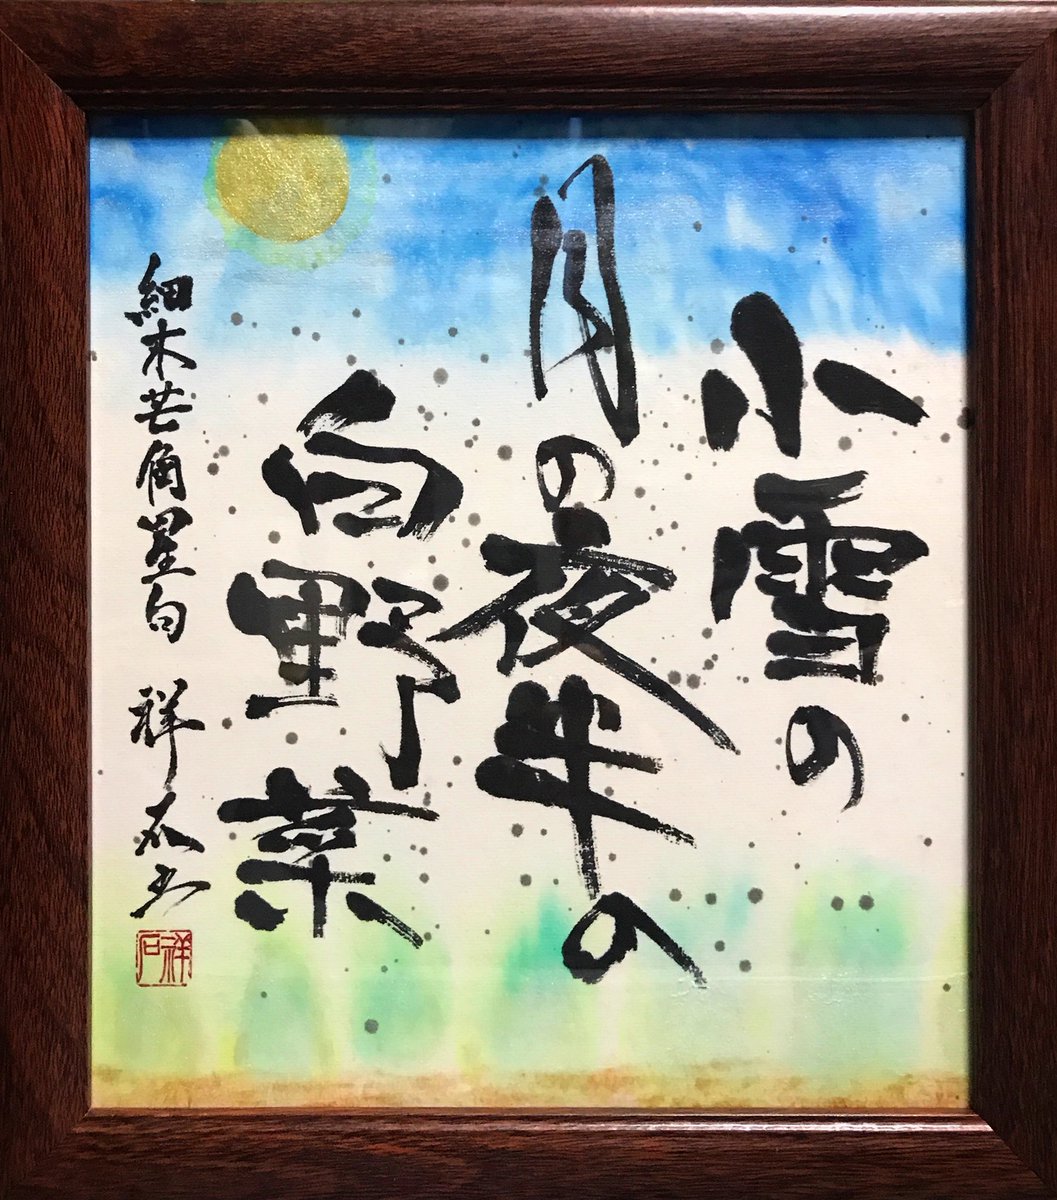 小雪の
月の夜半の
白野菜
細木芒角星句 祥石書
祥石